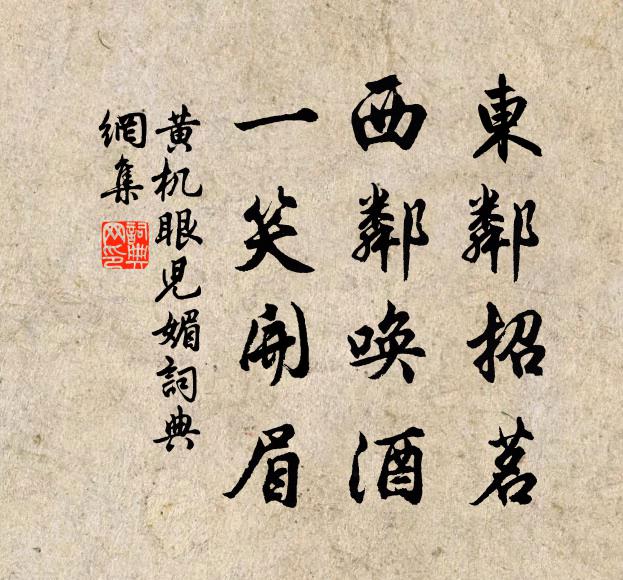 東鄰招茗
西鄰喚酒
一笑開眉
黄机眼兒媚詞典
網集
詞典
网印